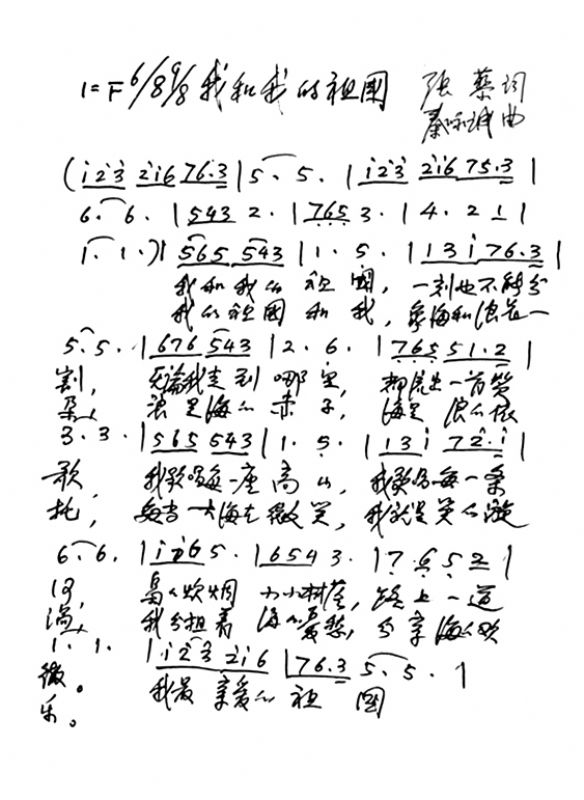 1=F 6/8 9/8 我和我的祖国 张藜词
秦咏诚曲
(i̇ 2̇ 3̇ 2̇ i̇ 6 7 6·3 | 5· 5· | i̇ 2̇ 3̇ 2̇ i̇ 6 7 5·3 |
6· 6· | 5 4 3 2· | 7 6 5 3· | 4· 2 1 |
1· 1·)| 5 6 5 5 4 3 | 1· 5· | 1 3 i̇ 7 6·3 |
我和我的祖国, 一刻也不能分
我的祖国和我, 象海和浪花一
5· 5· | 6 7 6 5 4 3 | 2· 6· | 7 6 5 5 1·2 |
割, 无论我走到哪里, 都流出一首赞
朵, 浪是海的赤子, 海是浪的依
3· 3· | 5 6 5 5 4 3 | 1· 5· | 1 3 i̇ 7 2̇·i̇ |
歌, 我歌唱每一座高山, 我歌唱每一条
托, 每当大海在微笑, 我就是笑的漩
6· 6· | i̇ 7 6 5· | 6 5 4 3· | 7· 6 5 2 |
河, 袅袅炊烟 小小村落, 路上一道
涡, 我分担着海的忧愁, 分享海的欢
1· 1· | i̇ 2̇ 3̇ 2̇ i̇ 6 | 7 6·3 5· 5· |
辙。 我最亲爱的祖国
乐。